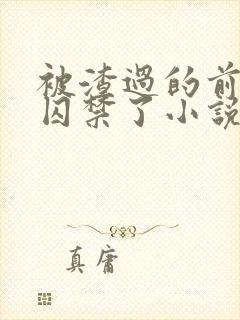 被渣過的前
囚禁了小説
真庸